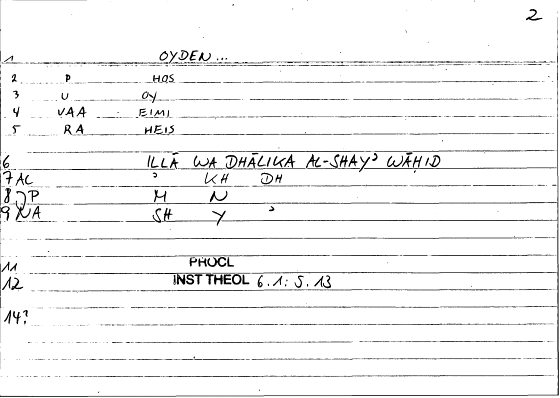 2
1 OYDEN...
2 P HOS
3 U OY
4 VAA EIMI
5 RA HEIS
6 ILLĀ WA DHĀLIKA AL-SHAYʾ WĀḤID
7 AL ʾ KH DH
8 P M N
9 NA SH Y ʾ
11 PROCL
12 INST THEOL 6.1: 5.13
14?